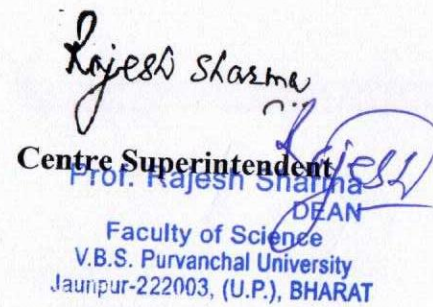 Rajesh Sharma
Centre Superintendent
Rajesh
Prof. Rajesh Sharma
DEAN
Faculty of Science
V.B.S. Purvanchal University
Jaunpur-222003, (U.P.), BHARAT